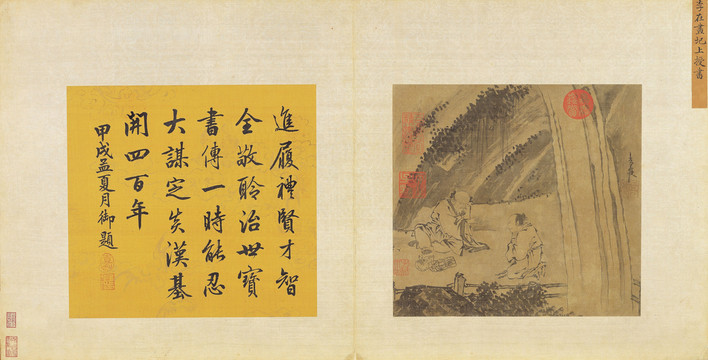 李在畫圯上授書
進履禮賢才智
全敬聆治世寶
書傳一時能忍
大謀定矣漢基
開四百年
甲戌孟夏月御題